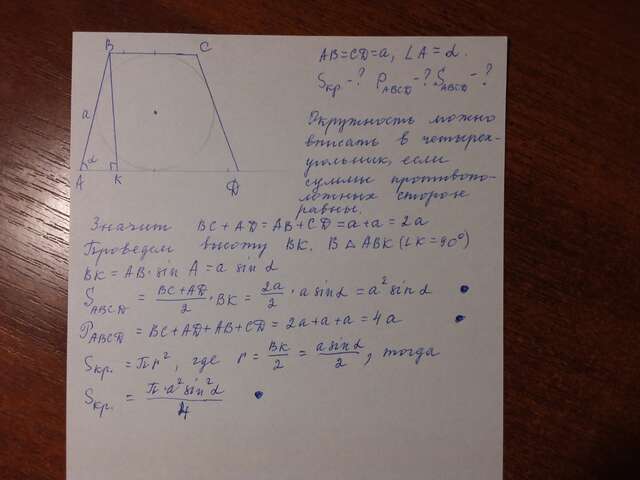 B C
a
α
A K D
AB=CD=a, ∠A=α.
Sкр.-? PABCD-? SABCD-?
Окружность можно
вписать в четырех-
угольник, если
суммы противопо-
ложных сторон
равны.
Значит BC+AD=AB+CD=a+a=2a
Проведем высоту BK. В △ABK (∠K=90°)
BK=AB·sin A=a sinα
SABCD = (BC+AD)/2 · BK = 2a/2 · a sinα = a² sinα
PABCD = BC+AD+AB+CD=2a+a+a=4a
Sкр.=πr², где r = BK/2 = a sinα/2, тогда
Sкр. = π·a² sin²α/4